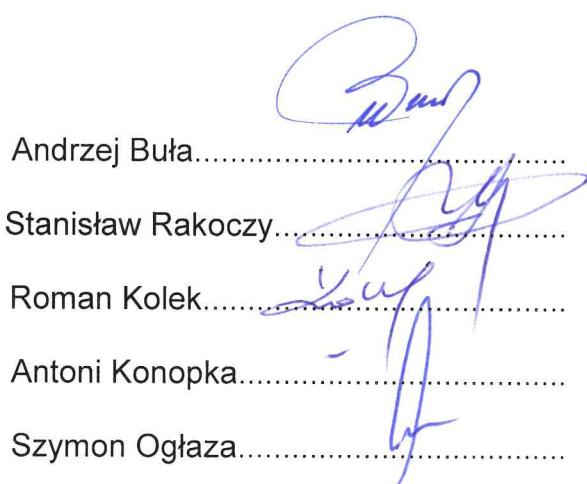 Andrzej Buła..........................................
Stanisław Rakoczy.................................
Roman Kolek.........................................
Antoni Konopka.....................................
Szymon Ogłaza.....................................